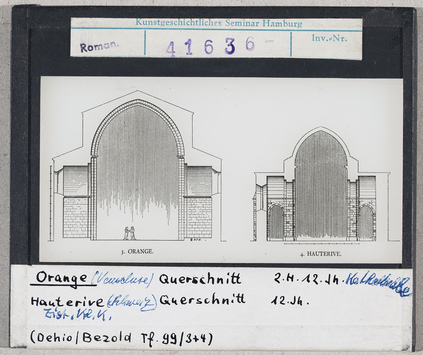 Kunstgeschichtliches Seminar Hamburg
Roman. 41636- Inv.-Nr.
3. ORANGE. 4. HAUTERIVE.
Orange (Vaucluse) Querschnitt 2.H.12.Jh. Kathedrale
Hauterive (Schweiz) Querschnitt 12.Jh.
Zist. Kl. K.
(Dehio/Bezold Tf. 99/3+4)